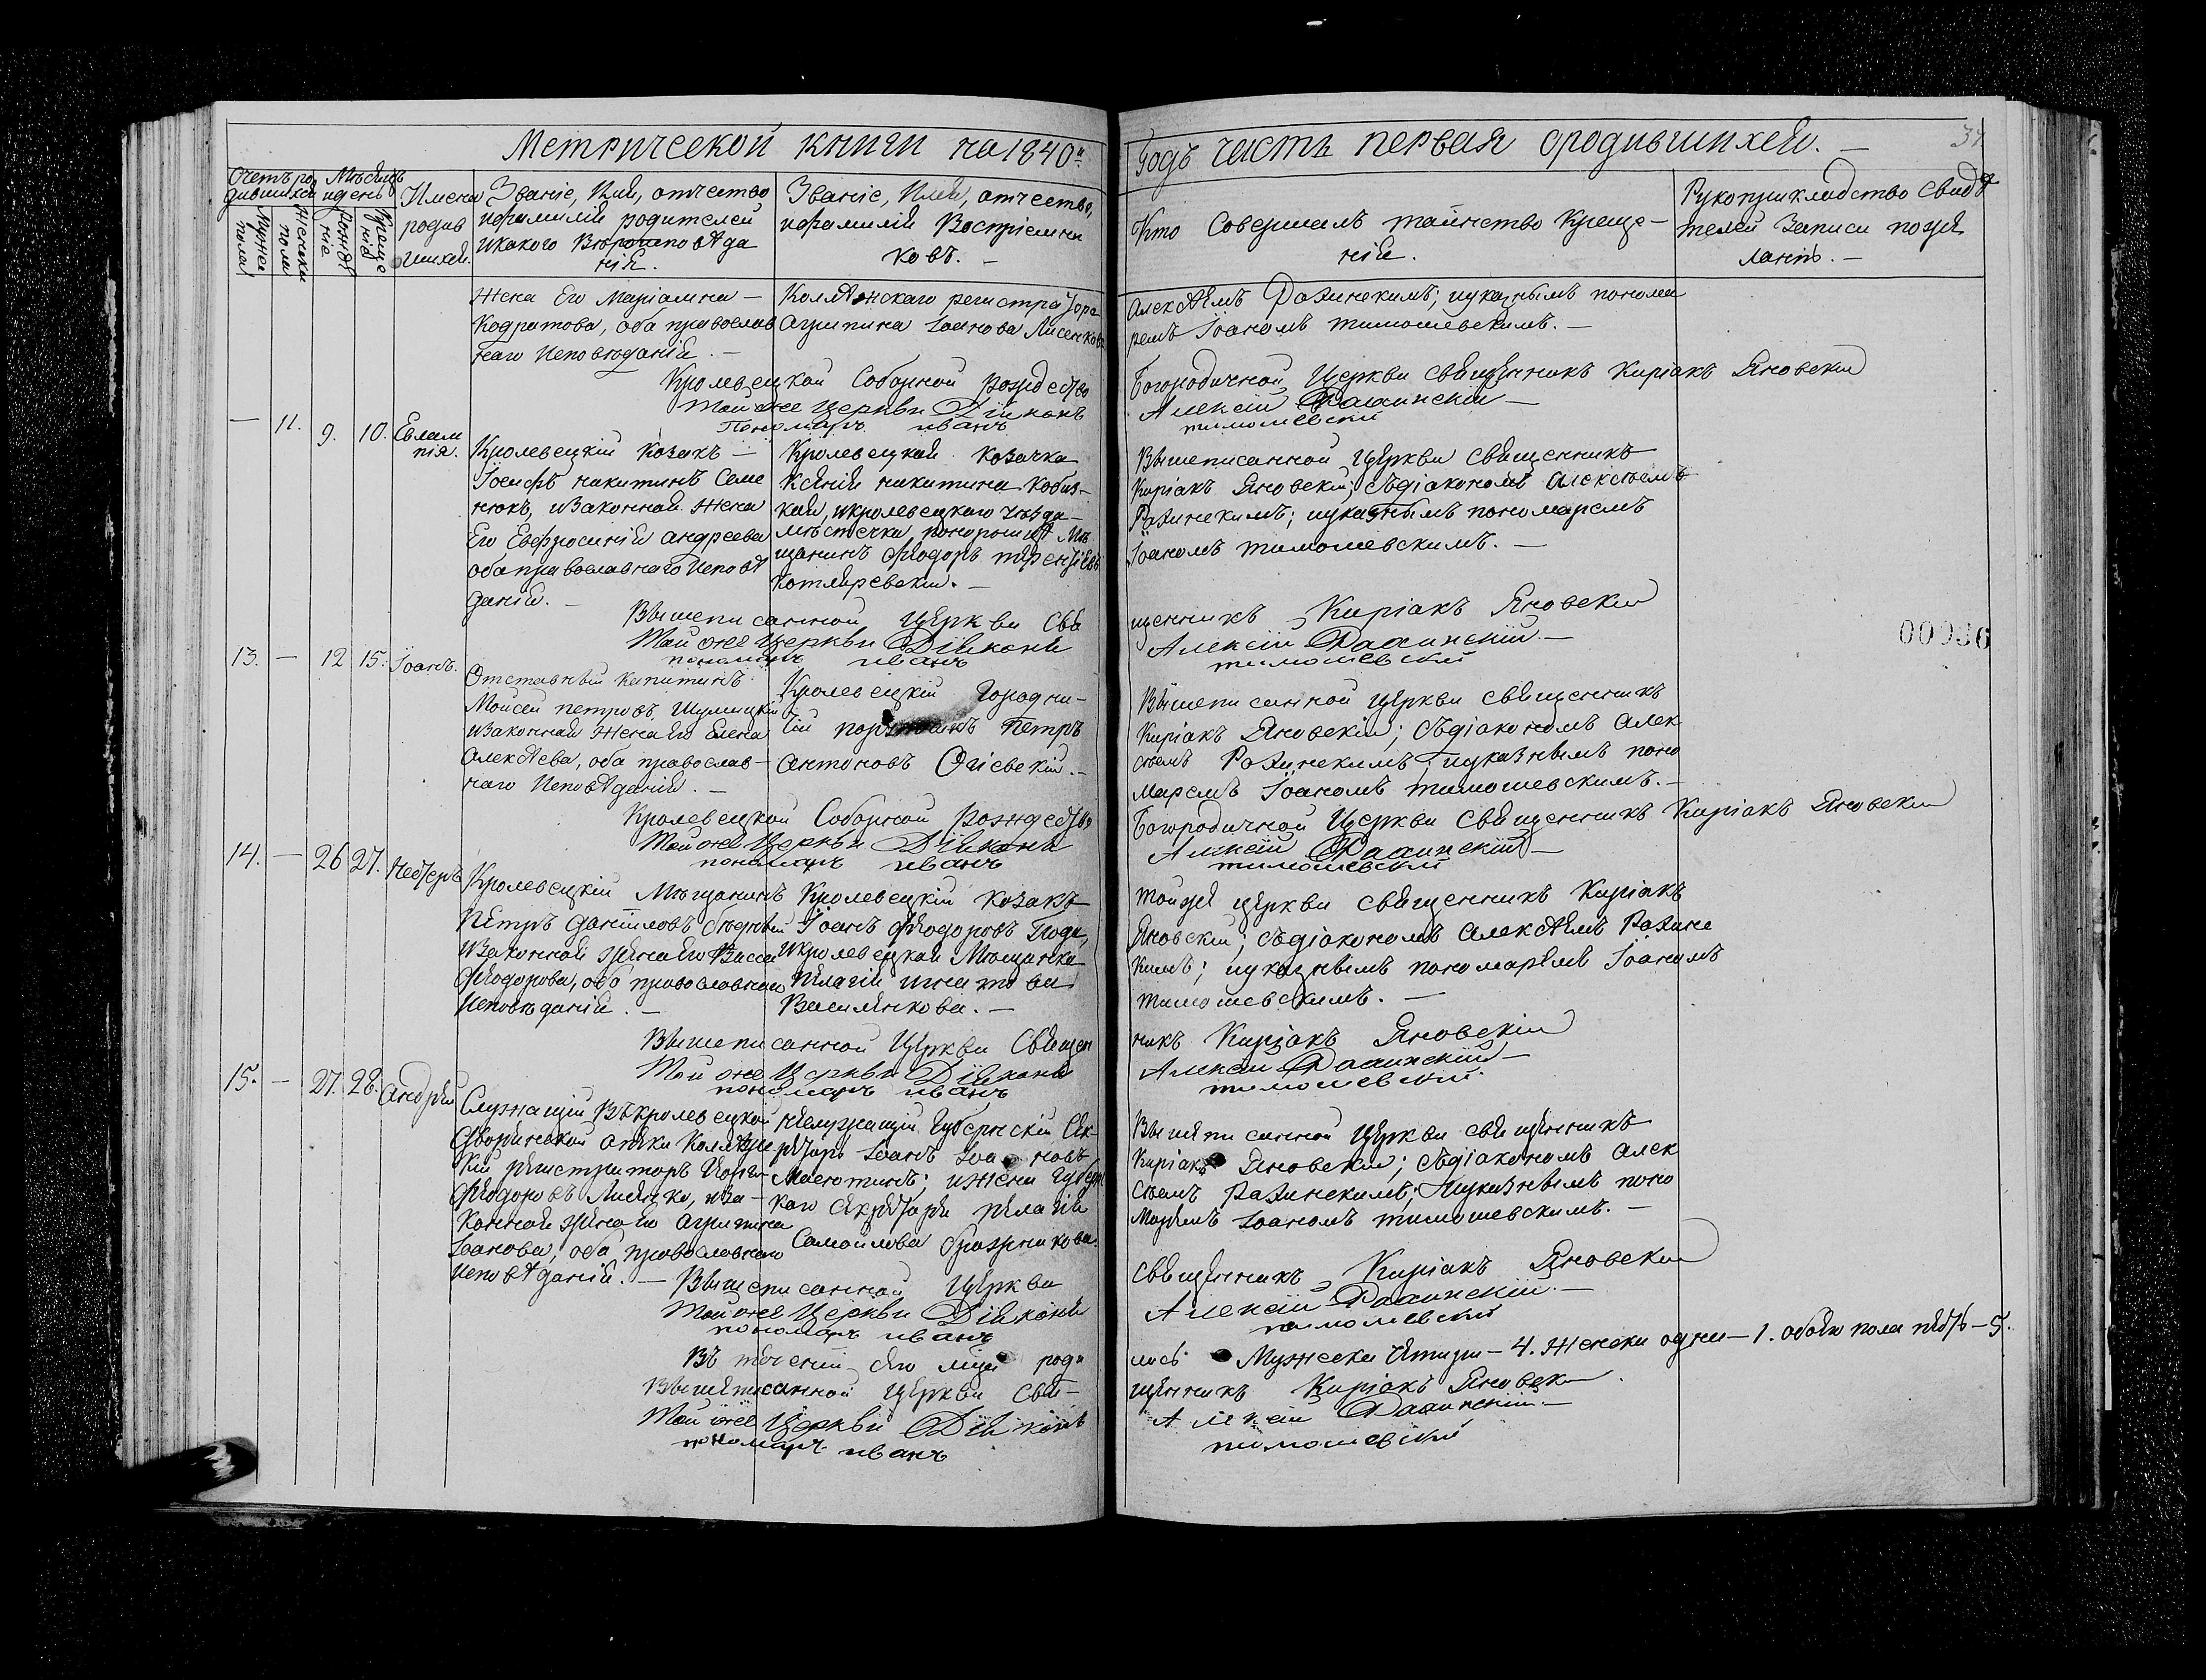 Метрической книги на 1840й
Годъ часть первая ородившихся. —
34
Счетъ ро
дившихся
Мужеска
пола
Женска
пола
Мѣсяцъ
идень
Рожде
ніе
Креще
ніе
Имена
родив
шихся.
Званіе, Имя, отчество
ифамилія родителей
икакого Вѣроисповѣда
нія.
Званіе, Имя, отчество,
ифамилія Воспріемни
ковъ. —
Кто Совершалъ таинство Креще-
нія.
Рукоприкладство свидѣ
телей Записи поже
ланію. —
Жена Его Маріамна —
Кодратова, оба православ
наго Исповѣданія. —
Коллѣжскаго регистратора
Агрипина Іоанова Лисенкова
Алексѣемъ Рахинскимъ; иуказнымъ понома
ремъ Іоаномъ тимошевскимъ. —
Кролевецкой Соборной Рождество
Богородичной Церкви священникъ Киріакъ Яновскій
Той же Церкви Діяконъ
Алексій Рахинскій —
Пономарь иванъ
тимошевскій
— 11. 9. 10. Евлам
пія.
Кролевецкій Козакъ —
Іосифъ никитинъ Семе
нюкъ, иЗаконная Жена
Его Евфросинія андреева
оба православнаго Исповѣ
данія. —
Кролевецкая козачка
Ксенія никитина Кобиз-
кая, икролевецкаго уѣзда —
мѣстечка понорницѣ Мѣ
щанинъ Феодоръ терентіевъ
Котляревскій. —
Вышеписанной Церкви священникъ
Киріакъ Яновскій; съдіакономъ алексѣемъ
Рахинскимъ; иуказнымъ пономаремъ
Іоаномъ тимошевскимъ. —
Вышеписанной Церкви Свя
щенникъ Киріакъ Яновскій
Той же Церкви Діяконъ
Алексій Рахинскій —
пономарь иванъ
тимошевскій
00036
13. — 12 15. Іоанъ.
Отставный капитанъ
Моисей петровъ Шумицкій
иЗаконная Жена Его Елена
Алексѣева, оба православ —
наго Исповѣданія. —
Кролевецкій Городни-
чій порутчикъ Петръ
антоновъ Огіевскій. —
Вышеписанной Церкви священникъ
Киріакъ Яновскій; съдіакономъ алек
сѣемъ Рахинскимъ; иуказнымъ поно
маремъ Іоаномъ тимошевскимъ. —
Кролевецкой Соборной Рождество
Богородичной Церкви священникъ Киріакъ Яновскій
Той же Церкви Діяконъ
Алексій Рахинскій —
пономарь иванъ
тимошевскій
14. — 26 27. Несторъ
Кролевецкій Мѣщанинъ
Петръ даніиловъ бѣдный
иЗаконная жена Его Васса
Феодорова, оба православнаго
Исповѣданія. —
Кролевецкій козакъ
Іоанъ Феодоровъ
икролевецкая Мѣщанка
Пелагія игнатова
Василенкова. —
тойже церкви священникъ Киріакъ
Яновскій; съдіакономъ алексѣемъ Рахинс
кимъ; иуказнымъ пономаремъ Іоаномъ
тимошевскимъ. —
Вышеписанной Церкви Священ
никъ Киріакъ Яновскій
Той же Церкви Діяконъ
Алексій Рахинскій —
пономарь иванъ
тимошевскій
15. — 27. 28. андрей
Служащій Въкролевецкой
дворянской опеки Коллѣжс
кій регистраторъ
Феодоровъ Лисенко, иЗа —
конная жена Его агрипина
Іоанова, оба православнаго
Исповѣданія. —
неслужащій Губернскій Сек-
ретарь Іоанъ Іоановъ
Маютинъ; ижена Губерн
каго секретаря пелагія
Самоилова
Вышеписанной Церкви священникъ
Киріакъ Яновскій; съдіакономъ алек
сѣемъ Рахинскимъ; иуказнымъ поно
маремъ Іоаномъ тимошевскимъ. —
Вышеписанной Церкви
священникъ Киріакъ Яновскій
Той же Церкви Діяконъ
Алексій Рахинскій. —
пономарь иванъ
тимошевскій
Въ теченіи сего мца роди
лись Мужеска Четыри — 4. Женска одна — 1. обоего пола пять — 5.
Вышеписанной Церкви Свя-
щенникъ Киріакъ Яновскій
Той же Церкви Діяконъ
Алексій Рахинскій —
пономарь иванъ
тимошевскій